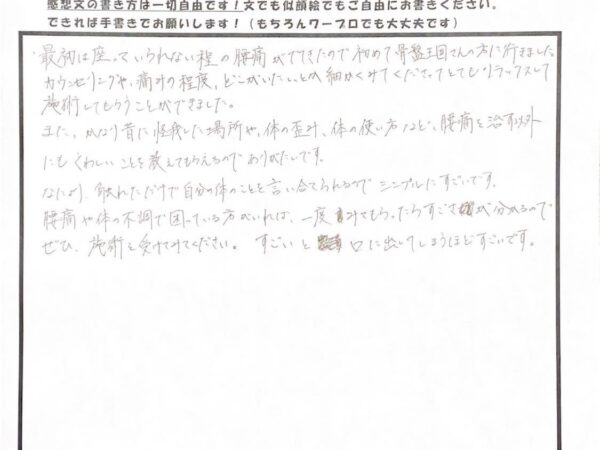 感想文の書き方は一切自由です！文でも似顔絵でもご自由にお書きください。
できれば手書きでお願いします！（もちろんワープロでも大丈夫です）
最初は座っていられない程の腰痛がでてきたので初めて骨盤王国さんの方に行きました。
カウンセリングや、痛みの程度、どこがいたいとか細かくみてくださってとてもリラックスして
施術してもらうことができました。
また、かなり昔に怪我した場所や、体の歪み、体の使い方など、腰痛を治す以外
にもくわしいことを教えてもらえるのでありがたいです。
なにより、触れただけで自分の体のことを言い当てられるのでシンプルにすごいです。
腰痛や体の不調で困っている方がいれば、一度みてもらったらすごさが分かるので
ぜひ、施術を受けてみてください。すごいと口に出してしまうほどすごいです。